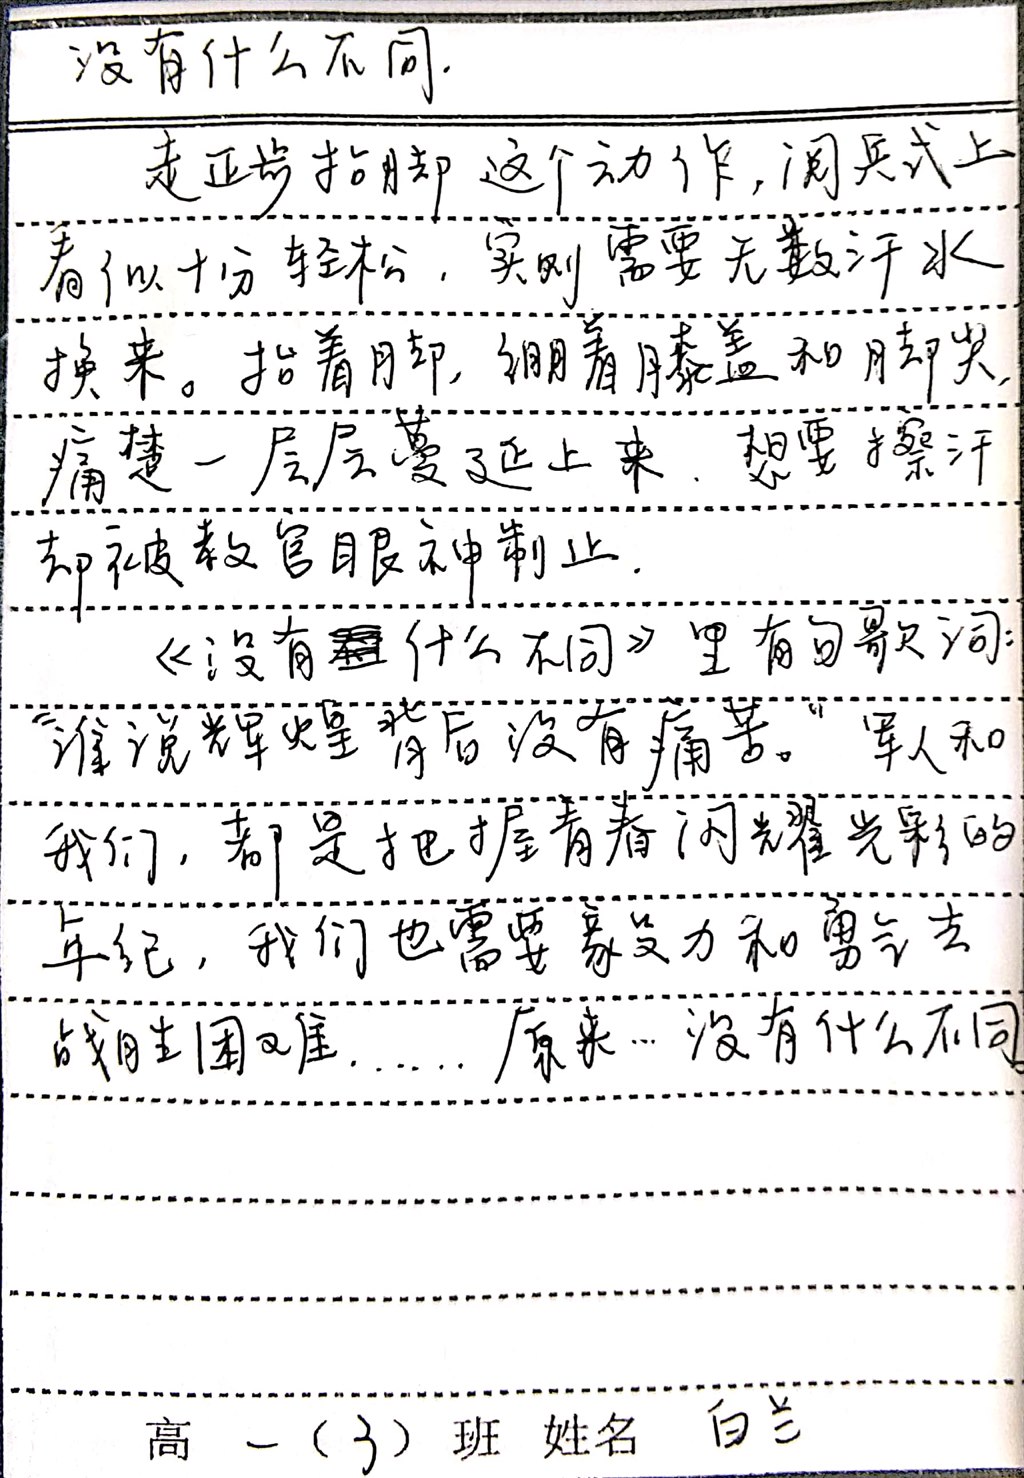 没有什么不同.
走正步抬脚这个动作,阅兵式上
看似十分轻松,实则需要无数汗水
换来。抬着脚,绷着膝盖和脚尖,
痛楚一层层蔓延上来.想要擦汗
却被教官眼神制止.
《没有什么不同》里有句歌词:
“谁说辉煌背后没有痛苦。”军人和
我们,都是把握青春闪耀光彩的
年纪,我们也需要毅力和勇气去
战胜困难......原来...没有什么不同。
高一(3)班 姓名 白兰